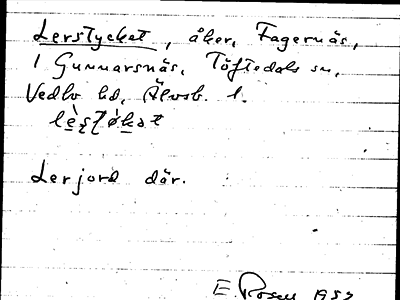 Lerstycket, åker, Fagernäs,
1 Gunnarsnäs, Töftedals sn,
Vedbo hd, Älvsb. l.
Lerjord där.
E. Rosell 1983